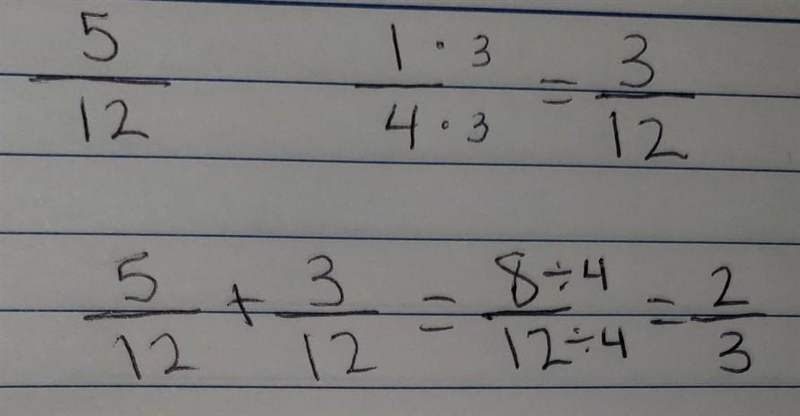 5/12    1 · 3/4 · 3 = 3/12
5/12 + 3/12 = 8÷4/12÷4 = 2/3